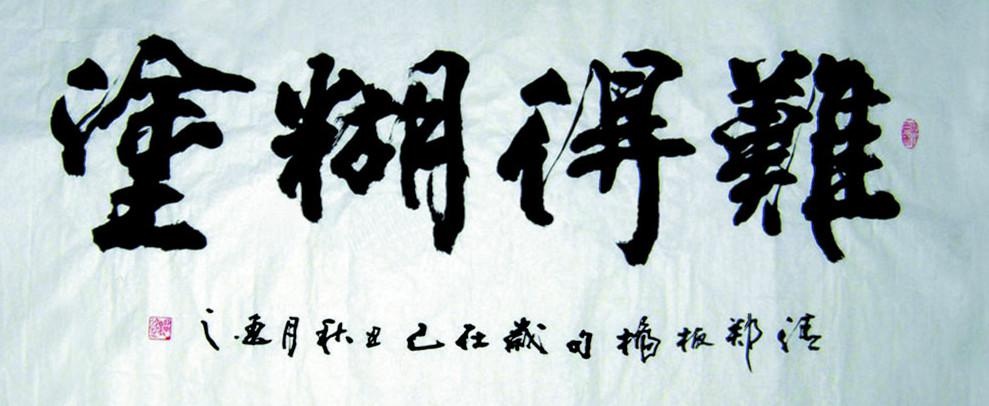 難得糊塗
清鄭板橋句歲在己丑秋月